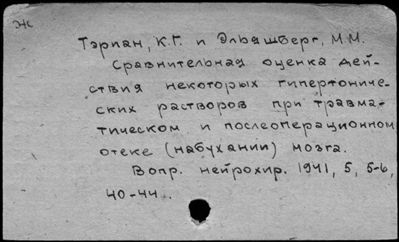 Ж
Тэриан, К.Г. и Эльяшберг, М.М.
Сравнительная оценка дей-
ствия некоторых гипертониче-
ских растворов при травма-
тическом и послеоперационном
отеке (набухании) мозга.
Вопр. нейрохир. 1941, 5, 5-6,
40-44.